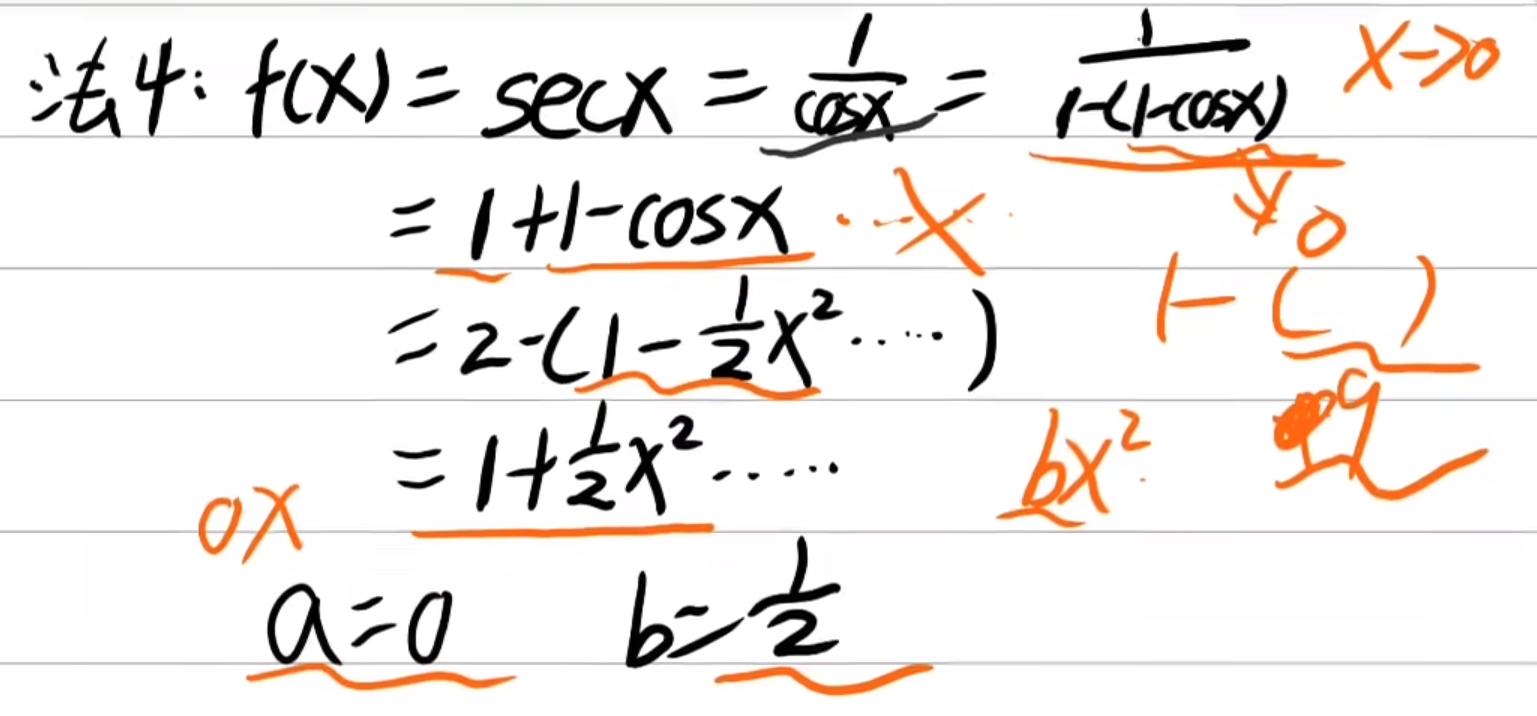 法4: f(x) = secx = 1/cosx = 1/(1-(1-cosx)) x→0
= 1+1-cosx ..... 0
= 2-(1-1/2x².....) 1-( )
= 1+1/2x²..... bx² q
0x
a=0 b=1/2